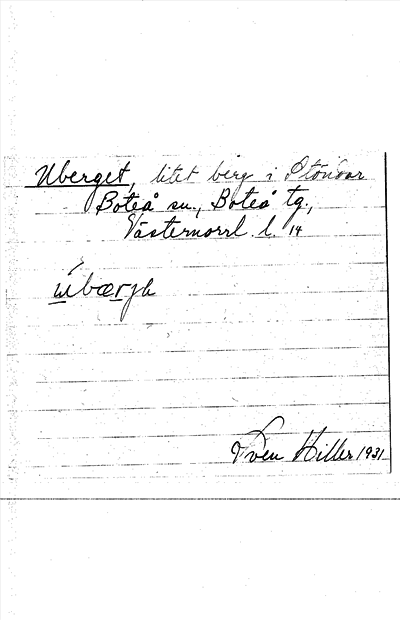 Uberget, litet berg i Stöndar
Boteå sn., Boteå tg.,
Västernorrl. l. 14
úbærjə
Sven Hiller 1931